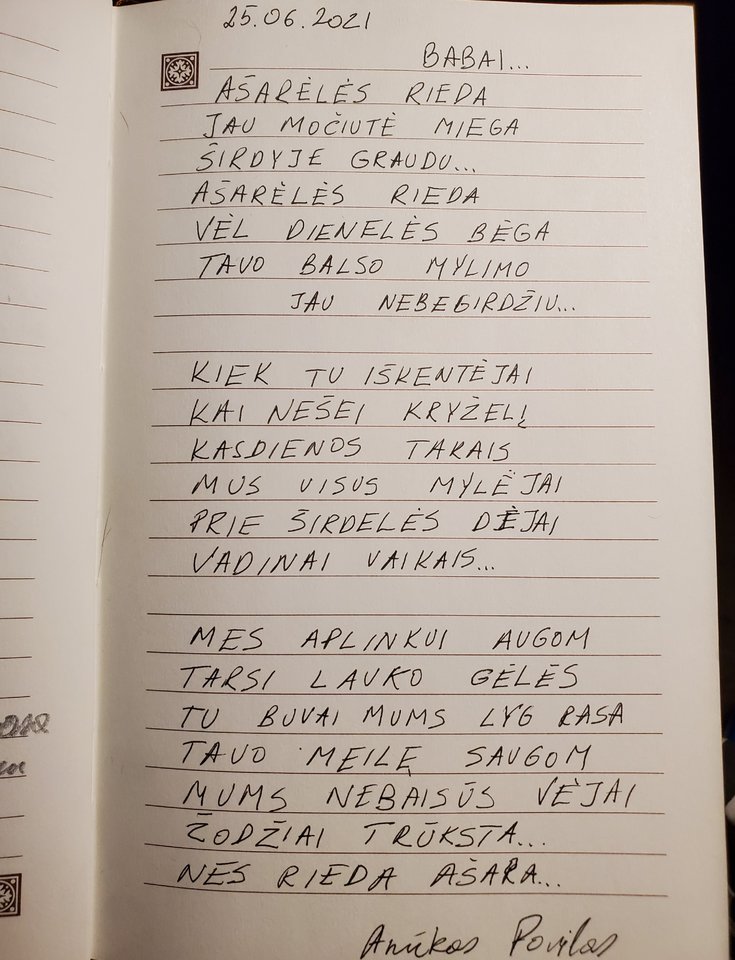 25.06.2021
BABAI...
AŠARĖLĖS RIEDA
JAU MOČIUTĖ MIEGA
ŠIRDYJE GRAUDU...
AŠARĖLĖS RIEDA
VĖL DIENELĖS BĖGA
TAVO BALSO MYLIMO
JAU NEBEGIRDŽIU...
KIEK TU IŠKENTĖJAI
KAI NEŠEI KRYŽELĮ
KASDIENOS TAKAIS
MUS VISUS MYLĖJAI
PRIE ŠIRDELĖS DĖJAI
VADINAI VAIKAIS...
MES APLINKUI AUGOM
TARSI LAUKO GĖLĖS
TU BUVAI MUMS LYG RASA
TAVO MEILĘ SAUGOM
MUMS NEBAISŪS VĖJAI
ŽODŽIAI TRŪKSTA...
NES RIEDA AŠARA...
Anūkas Povilas